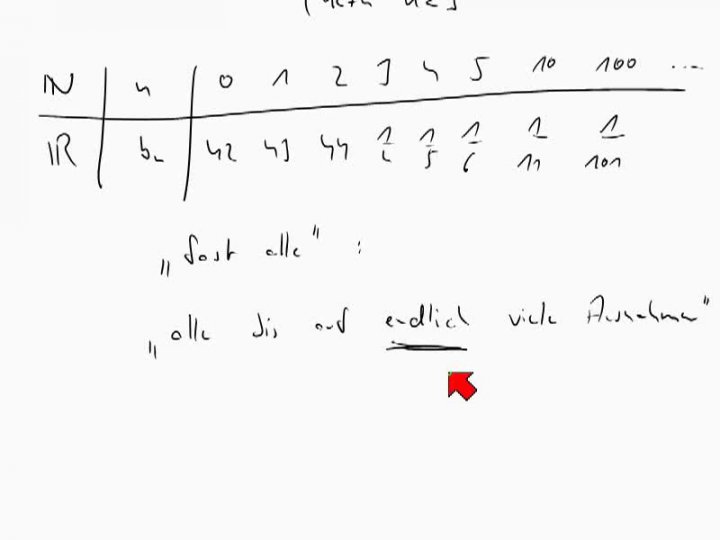 ℕ n 0 1 2 3 4 5 10 100 ....
ℝ bₙ 42 43 44 1/4 1/5 1/6 1/11 1/101
„fast alle" :
„alle bis auf endlich viele Ausnahmen"